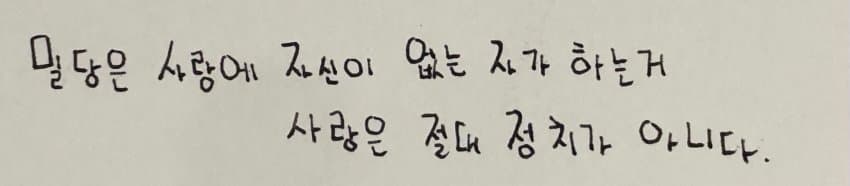 밀당은 사랑에 자신이 없는 자가 하는거
사랑은 절대 정치가 아니다.